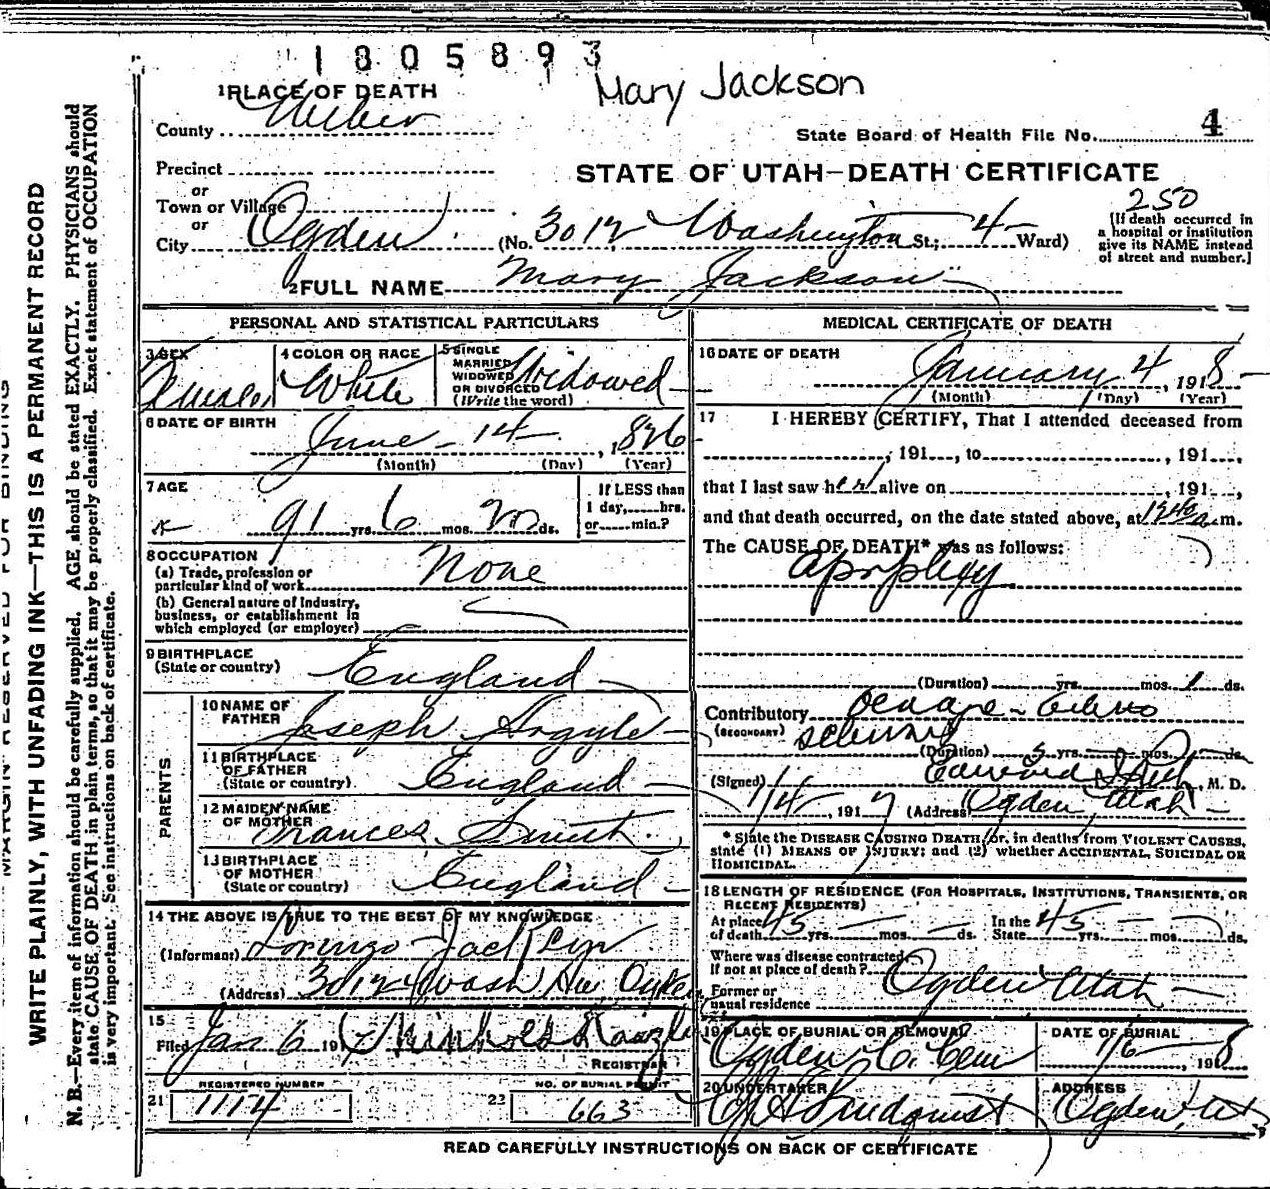 1805893
Mary Jackson
1 PLACE OF DEATH
County Weber
State Board of Health File No. 4
Precinct
or
Town or Village
or
City Ogden
STATE OF UTAH—DEATH CERTIFICATE
250
(No. 3012 Washington St.; 4 Ward)
[If death occurred in
a hospital or institution
give its NAME instead
of street and number.]
2 FULL NAME Mary Jackson
MARGIN RESERVED FOR BINDING
WRITE PLAINLY, WITH UNFADING INK—THIS IS A PERMANENT RECORD
N. B.—Every item of information should be carefully supplied. AGE should be stated EXACTLY. PHYSICIANS should
state CAUSE OF DEATH in plain terms, so that it may be properly classified. Exact statement of OCCUPATION
is very important. See instructions on back of certificate.
PERSONAL AND STATISTICAL PARTICULARS
3 SEX
Female
4 COLOR OR RACE
White
5 SINGLE
MARRIED
WIDOWED
OR DIVORCED
(Write the word)
Widowed
6 DATE OF BIRTH
June 14, 1826
(Month) (Day) (Year)
7 AGE
91 yrs. 6 mos. 20 ds.
If LESS than
1 day, hrs.
or min.?
8 OCCUPATION
(a) Trade, profession or
particular kind of work
None
(b) General nature of Industry,
business, or establishment in
which employed (or employer)
9 BIRTHPLACE
(State or country)
England
PARENTS
10 NAME OF
FATHER
Joseph Argyle
11 BIRTHPLACE
OF FATHER
(State or country)
England
12 MAIDEN NAME
OF MOTHER
Frances Smith
13 BIRTHPLACE
OF MOTHER
(State or country)
England
14 THE ABOVE IS TRUE TO THE BEST OF MY KNOWLEDGE
(Informant) Lorenzo Jackson
(Address) 3012 Wash Ave Ogden
15
Filed Jan 6 191
REGISTRAR
REGISTERED NUMBER
21 1114
NO. OF BURIAL PERMIT
22 663
MEDICAL CERTIFICATE OF DEATH
16 DATE OF DEATH
January 4, 1918
(Month) (Day) (Year)
17 I HEREBY CERTIFY, That I attended deceased from
, 191 , to , 191 ,
that I last saw her alive on , 191 ,
and that death occurred, on the date stated above, at 1240 a.m.
The CAUSE OF DEATH* was as follows:
apoplexy
(Duration) yrs. mos. 1 ds.
Contributory
(SECONDARY)
(Duration) 5 yrs. mos. ds.
(Signed) Edward M. D.
1/4, 1917 (Address) Ogden Utah
* State the DISEASE CAUSING DEATH, or, in deaths from VIOLENT CAUSES,
state (1) MEANS OF INJURY; and (2) whether ACCIDENTAL, SUICIDAL OR
HOMICIDAL.
18 LENGTH OF RESIDENCE (FOR HOSPITALS, INSTITUTIONS, TRANSIENTS, OR
RECENT RESIDENTS)
At place
of death 45 yrs. mos. ds.
In the
State 45 yrs. mos. ds.
Where was disease contracted,
if not at place of death?
Former or
usual residence
Ogden Utah
19 PLACE OF BURIAL OR REMOVAL
Ogden C. Cem
DATE OF BURIAL
1/6, 1918
20 UNDERTAKER
Lindquist
ADDRESS
Ogden, Ut
READ CAREFULLY INSTRUCTIONS ON BACK OF CERTIFICATE